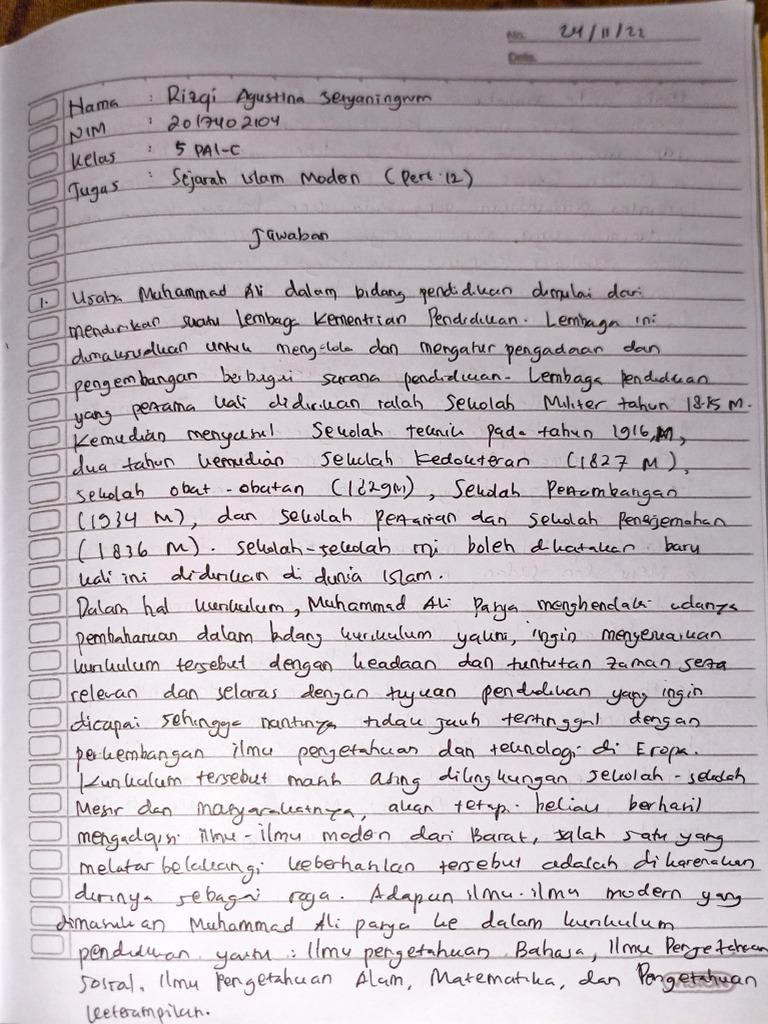 No. 24/11/22
Date.
Nama : Rizqi Agustina Setyaningrum
NIM : 2017402104
Kelas : 5 PAI-C
Tugas : Sejarah Islam Modern (Pert. 12)
Jawaban
1. Usaha Muhammad Ali dalam bidang pendidikan dimulai dari
mendirikan suatu Lembaga Kementrian Pendidikan. Lembaga ini
dimaksudkan untuk mengelola dan mengatur pengadaan dan
pengembangan berbagai sarana pendidikan. Lembaga pendidikan
yang pertama kali didirikan ialah Sekolah Militer tahun 1815 M.
Kemudian menyusul Sekolah teknik pada tahun 1916 M,
dua tahun kemudian sekolah Kedokteran (1827 M),
sekolah obat-obatan (1829M), Sekolah Pertambangan
(1934 M), dan sekolah pertanian dan sekolah Penerjemahan
(1836 M). Sekolah-sekolah ini boleh dikatakan baru
kali ini didirikan di dunia Islam.
Dalam hal kurikulum, Muhammad Ali Pasya menghendaki adanya
pembaharuan dalam bidang kurikulum yakni, ingin menyesuaikan
kurikulum tersebut dengan keadaan dan tuntutan zaman serta
relevan dan selaras dengan tujuan pendidikan yang ingin
dicapai sehingga nantinya tidak jauh tertinggal dengan
perkembangan ilmu pengetahuan dan teknologi di Eropa.
Kurikulum tersebut masih asing dilingkungan sekolah-sekolah
Mesir dan masyarakatnya, akan tetapi beliau berhasil
mengadopsi ilmu-ilmu modern dari Barat, salah satu yang
melatar belakangi keberhasilan tersebut adalah dikarenakan
dirinya sebagai raja. Adapun ilmu-ilmu modern yang
dimasukan Muhammad Ali pasya ke dalam kurikulum
pendidikan yaitu : Ilmu pengetahuan Bahasa, Ilmu Pengetahuan
Sosial, Ilmu Pengetahuan Alam, Matematika, dan Pengetahuan
keterampilan.